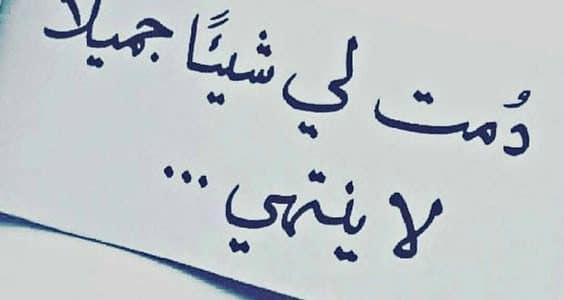 دُمت لي شيئًا جميلا
لا ينتهي...